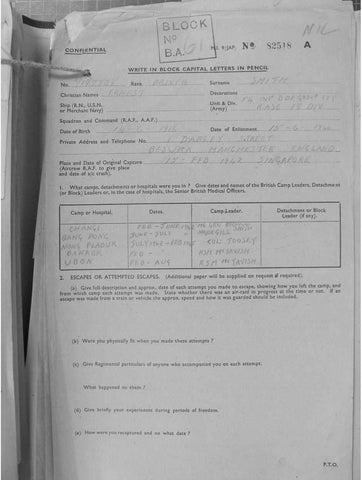 BLOCK
Nº
B.A.
NIL
CONFIDENTIAL
M.I. 9/JAP. Nº 82518 A
WRITE IN BLOCK CAPITAL LETTERS IN PENCIL.
No. Rank Surname SMITH
Christian Names ERNEST Decorations
Ship (R.N., U.S.N. or Merchant Navy) Unit & Div. (Army) BASE 18 DIV
Squadron and Command (R.A.F., A.A.F.)
Date of Birth Date of Enlistment 15-6-1940
Private Address and Telephone No. STREET
BESWICK MANCHESTER ENGLAND
Place and Date of Original Capture 15TH FEB 1942 SINGAPORE
(Aircrew R.A.F. to give place and date of a/c crash).
1. What camps, detachments or hospitals were you in? Give dates and names of the British Camp Leaders, Detachment (or Block) Leaders or, in the case of hospitals, the Senior British Medical Officers.
Camp or Hospital. Dates. Camp Leader. Detachment or Block Leader (if any).
CHANGI FEB - JUNE 1942
BANG PONG JUNE - JULY
NONG PLADUK JULY 1942 - FEB 1945 COL TOOSEY
BANKOK FEB - RSM McTAVISH
UBON FEB - AUG RSM McTAVISH
2. ESCAPES OR ATTEMPTED ESCAPES. (Additional paper will be supplied on request if required).
(a) Give full description and approx. date of each attempt you made to escape, showing how you left the camp, and from which camp each attempt was made. State whether there was an air-raid in progress at the time or not. If an escape was made from a train or vehicle the approx. speed and how it was guarded should be included.
(b) Were you physically fit when you made these attempts?
(c) Give Regimental particulars of anyone who accompanied you on each attempt.
What happened to them?
(d) Give briefly your experiences during periods of freedom.
(e) How were you recaptured and on what date?
P.T.O.